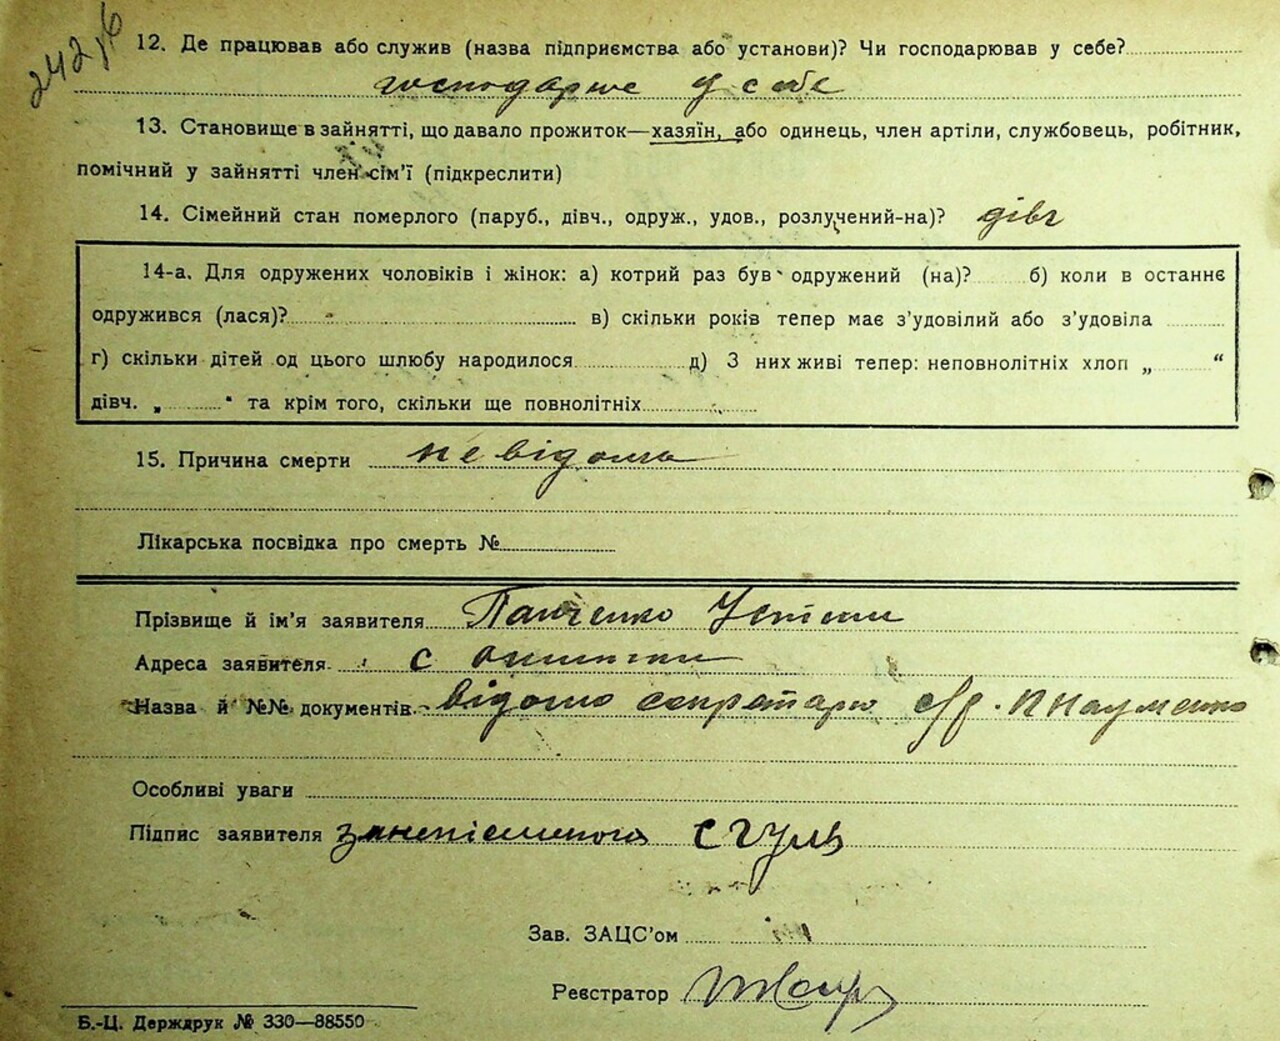 242
12. Де працював або служив (назва підприємства або установи)? Чи господарював у себе?
господарює у себе
13. Становище в зайнятті, що давало прожиток—хазяїн, або одинець, член артіли, службовець, робітник,
помічний у зайнятті член сім’ї (підкреслити)
14. Сімейний стан померлого (паруб., дівч., одруж., удов., розлучений-на)? дівч
14-а. Для одружених чоловіків і жінок: а) котрий раз був одружений (на)? б) коли в останнє
одружився (лася)? в) скільки років тепер має з’удовілий або з’удовіла
г) скільки дітей од цього шлюбу народилося д) З них живі тепер: неповнолітніх хлоп „ “
дівч. „ “ та крім того, скільки ще повнолітніх
15. Причина смерти невідома
Лікарська посвідка про смерть №
Прізвище й ім’я заявителя Панченко
Адреса заявителя с
Назва й №№ документів відомо секретарю с/р. П Науменко
Особливі уваги
Підпис заявителя
Зав. ЗАЦС’ом
Реєстратор
Б.-Ц. Держдрук № 330—88550